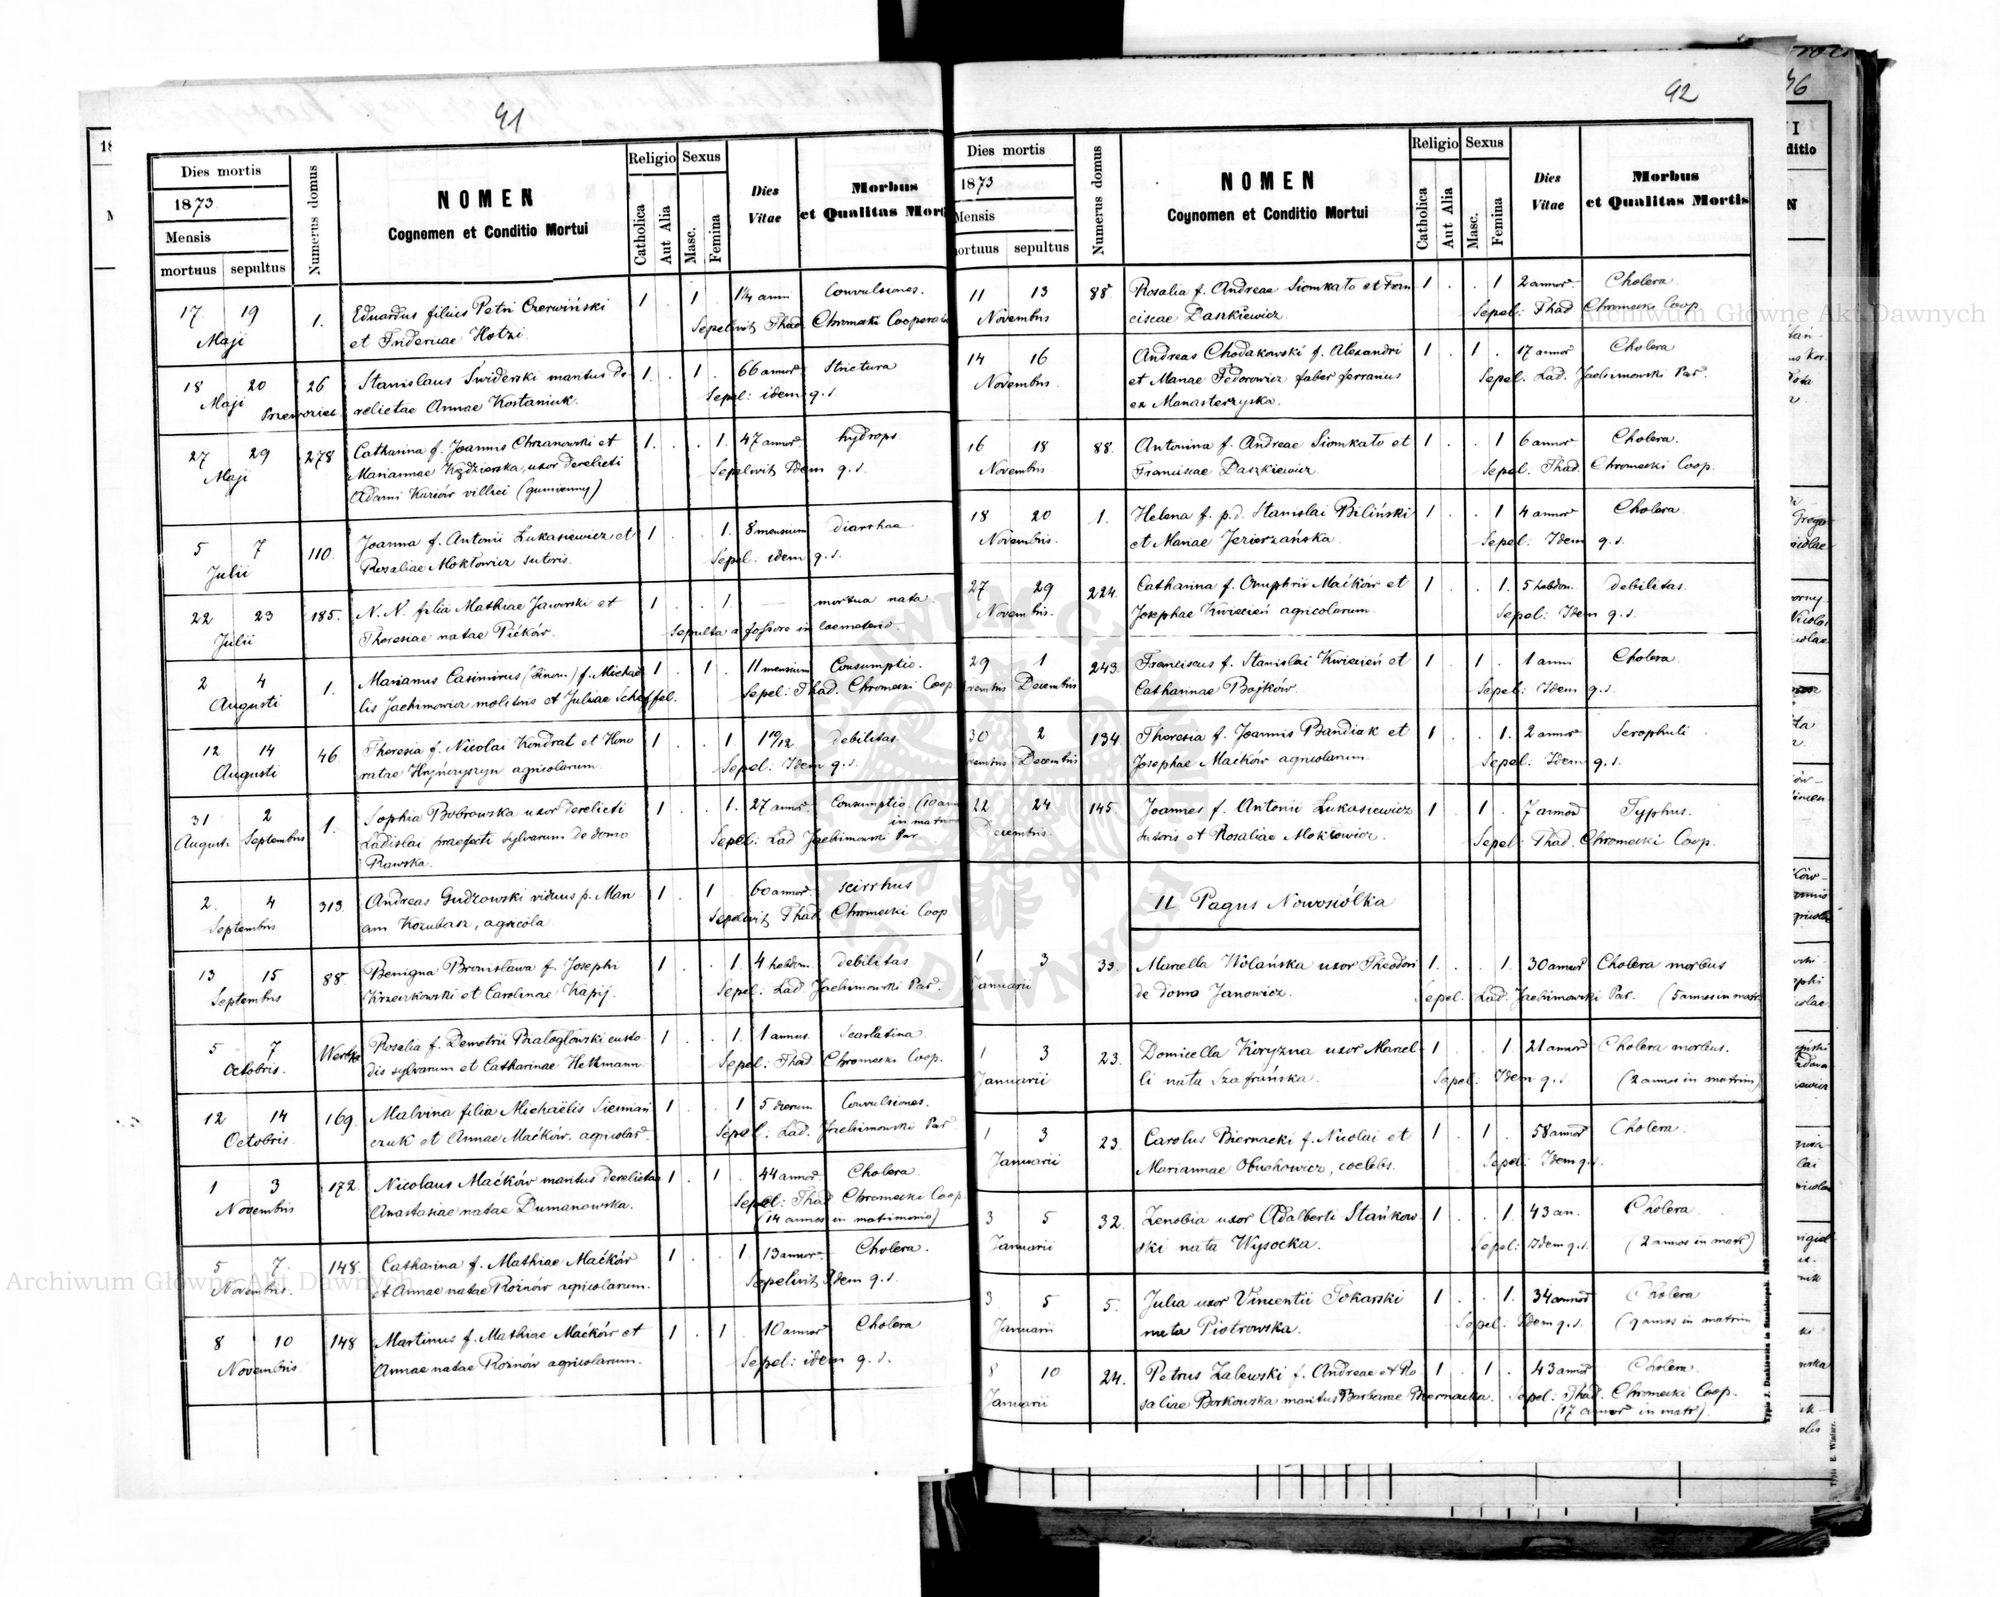 91
Dies mortis
1873.
Mensis
mortuus sepultus
Numerus domus
NOMEN
Cognomen et Conditio Mortui
Religio
Catholica
Aut Alia
Sexus
Masc.
Femina
Dies
Vitae
Morbus
et Qualitas Mort
17 19 1. Eduardus filius Petri Czerwiński 1 . 1 . 1¼ anni Convulsiones.
Maji et Fridericae Hotzi. Sepelivit Thad. Chromecki Cooperator
18 20 26 Stanislaus Świderski maritus de 1. . 1 . 66 annor. Strictura
Maji Przewoziec relictae Annae Kostaniuk. Sepel: idem q. s.
27 29 278 Catharina f. Joannis Chrzanowski et 1. . . 1. 47 annor. hydrops.
Maji Mariannae Kędzierska, uxor derelicti Sepelivit Idem q. s.
Adami villici (gumienny)
5 7 110. Joanna f. Antonii Łukasiewicz et 1 . . 1. 8 mensium diarrhae
Julii Rosaliae Mokłowicz sutoris. Sepel. idem q. s.
22 23 185. N. N. filia Mathiae Jaworski et 1 . . 1. — mortua nata.
Julii Theresiae natae Pićków. Sepulta a fossore in caemeterio.
2 4 1. Marianus Casimirus (binom.) f. Michae 1 . 1 . 11 mensium Consumptio.
Augusti lis Jachimowicz molitoris et Juliae Scheffel. Sepel: Thad. Chromecki Coop.
12 14 46. Theresia f. Nicolai Kondrat et Hono 1 . . 1 1 10/12. debilitas.
Augusti ratae Hryńczyszyn agricolarum. Sepel: Idem q. s.
31 2 1. Sophia Bobrowska uxor derelicti 1 . . 1. 27 annor. Consumptio (10 ann
August. Septembris Ladislai praefecti sylvarum de domo in matrimo
Rawska. Sepel: Lad Jachimowski Par.
2. 4 313. Andreas Gudzowski viduus p. Mari 1 . 1 . 60 annor. scirrhus
Septembris am Kozubasz, agricola. Sepelivit Thad. Chromecki Coop
13 15 88. Benigna Bronisława f. Josephi 1 . . 1. 4 hebdom. debilitas
Septembris Krzeczkowski et Carolinae Kapij. Sepel: Lad. Jachimowski Par.
5 7 Rosalia f. Demetrii Białogłowski custo 1 . . 1. 1 annus. Scarlatina.
Octobris. dis sylvarum et Catharinae Hetzmann. Sepel: Thad. Chromecki Coop.
12 14 169. Malvina filia Michaëlis Siemiań 1 . . 1 5 dierum Convulsiones.
Octobris. czuk et Annae Maćków. agricolar. Sepel. Lad. Jachimowski Par.
1 3 172. Nicolaus Maćków maritus derelictae 1 . 1 . 44 annor. Cholera.
Novembris Anastasiae natae Dumanowska. Sepel: Thad Chromecki Coop.
(14 annos in matrimonio)
5 7. 148. Catharina f. Mathiae Maćków 1 . . 1. 13 annor. Cholera.
Novembris. et Annae natae Rożnów agricolarum. Sepelivit Idem q. s.
8 10 148 Martinus f. Mathiae Maćków et 1 . 1 . 10 annor. Cholera
Novembris Annae natae Rożnów agricolarum. Sepel: idem q. s.
92
Dies mortis
1873
Mensis
ortuus sepultus
Numerus domus
NOMEN
Coynomen et Conditio Mortui
Religio
Catholica
Aut Alia
Sexus
Masc.
Femina
Dies
Vitae
Morbus
et Qualitas Mortis
11 13 88. Rosalia f. Andreae Siomkało et Fran 1 . . 1 2 annor. Cholera.
Novembris ciscae Daszkiewicz. Sepel: Thad Chromecki Coop.
14 16 Andreas Chodakowski f. Alexandri 1 . 1 . 17 annor. Cholera
Novembris. et Mariae Fedorowicz faber ferrarius Sepel. Lad. Jachimowski Par.
ex Manasterzyska.
16 18 88. Antonina f. Andreae Siomkało et 1 . . 1 6 annor. Cholera.
Novembris Franciscae Daszkiewicz. Sepel: Thad. Chromecki Coop.
18 20 1. Helena f. p. d. Stanislai Biliński 1 . . 1 4 annor. Cholera.
Novembris. et Mariae Jezierzańska. Sepel: Idem q. s.
27 29 224. Catharina f. Onuphrii Maćków et 1 . . 1. 5 hebdom. debilitas.
Novembris. Josephae Kwiecień agricolarum. Sepel: Idem q. s.
29 1 243. Franciscus f. Stanislai Kwiecień et 1 . 1 . 1 anni Cholera.
vembris Decembris Catharinae Bojków. Sepel: Idem q. s.
30 2 134. Theresia f. Joannis Bandiak et 1 . . 1. 2 annor. Scrophuli
vembris Decembris Josephae Maćków agricolarum. Sepel: Idem q. s.
22 24 145. Joannes f. Antonii Łukasiewicz 1 . 1 . 7 annor. Typhus.
Decembris. sutoris et Rosaliae Mokłowicz. Sepel: Thad. Chromecki Coop.
II Pagus Nowosiółka
1 3 33. Marcella Wolańska uxor Theodori 1. . . 1. 30 annor Cholera morbus
Januarii de domo Janowicz. Sepel: Lad. Jachimowski Par. (5 annos in matr.
1 3 23. Domicella Koryzna uxor Marcel- 1 . . 1 21 annor Cholera morbus.
Januarii li nata Szafrańska. Sepel: Idem q. s. (2 annos in matrim)
1 3 23 Carolus Biernacki f. Nicolai et 1 . 1 . 58 annor. Cholera.
Januarii Mariannae Obuchowicz, coelebs. Sepel: Idem q. s.
3 5 32. Zenobia uxor Adalberti Stańkow 1 . . 1. 43 an. Cholera
Januarii ski nata Wysocka. Sepel: Idem q. s. (2 annos in matr)
3 5 5. Julia uxor Vincentii Tokarski 1 . . 1. 34 annor Cholera
Januarii nata Piotrowska. Sepel: Idem q. s. (9 annos in matrim)
8 10 24. Petrus Zalewski f. Andreae et Ro 1 . 1 . 43 annor Cholera.
Januarii saliae Borkowska maritus Barbarae Biernacka. Sepel: Thad. Chromecki Coop.
(17 annor in matr).
Typis J. Dankiewicz in Stanislaopoli 1869
Typis E. Winiarz
Archiwum Główne Akt Dawnych
Archiwum Główne Akt Dawnych
ARCHIWUM GŁÓWNE AKT DAWNYCH